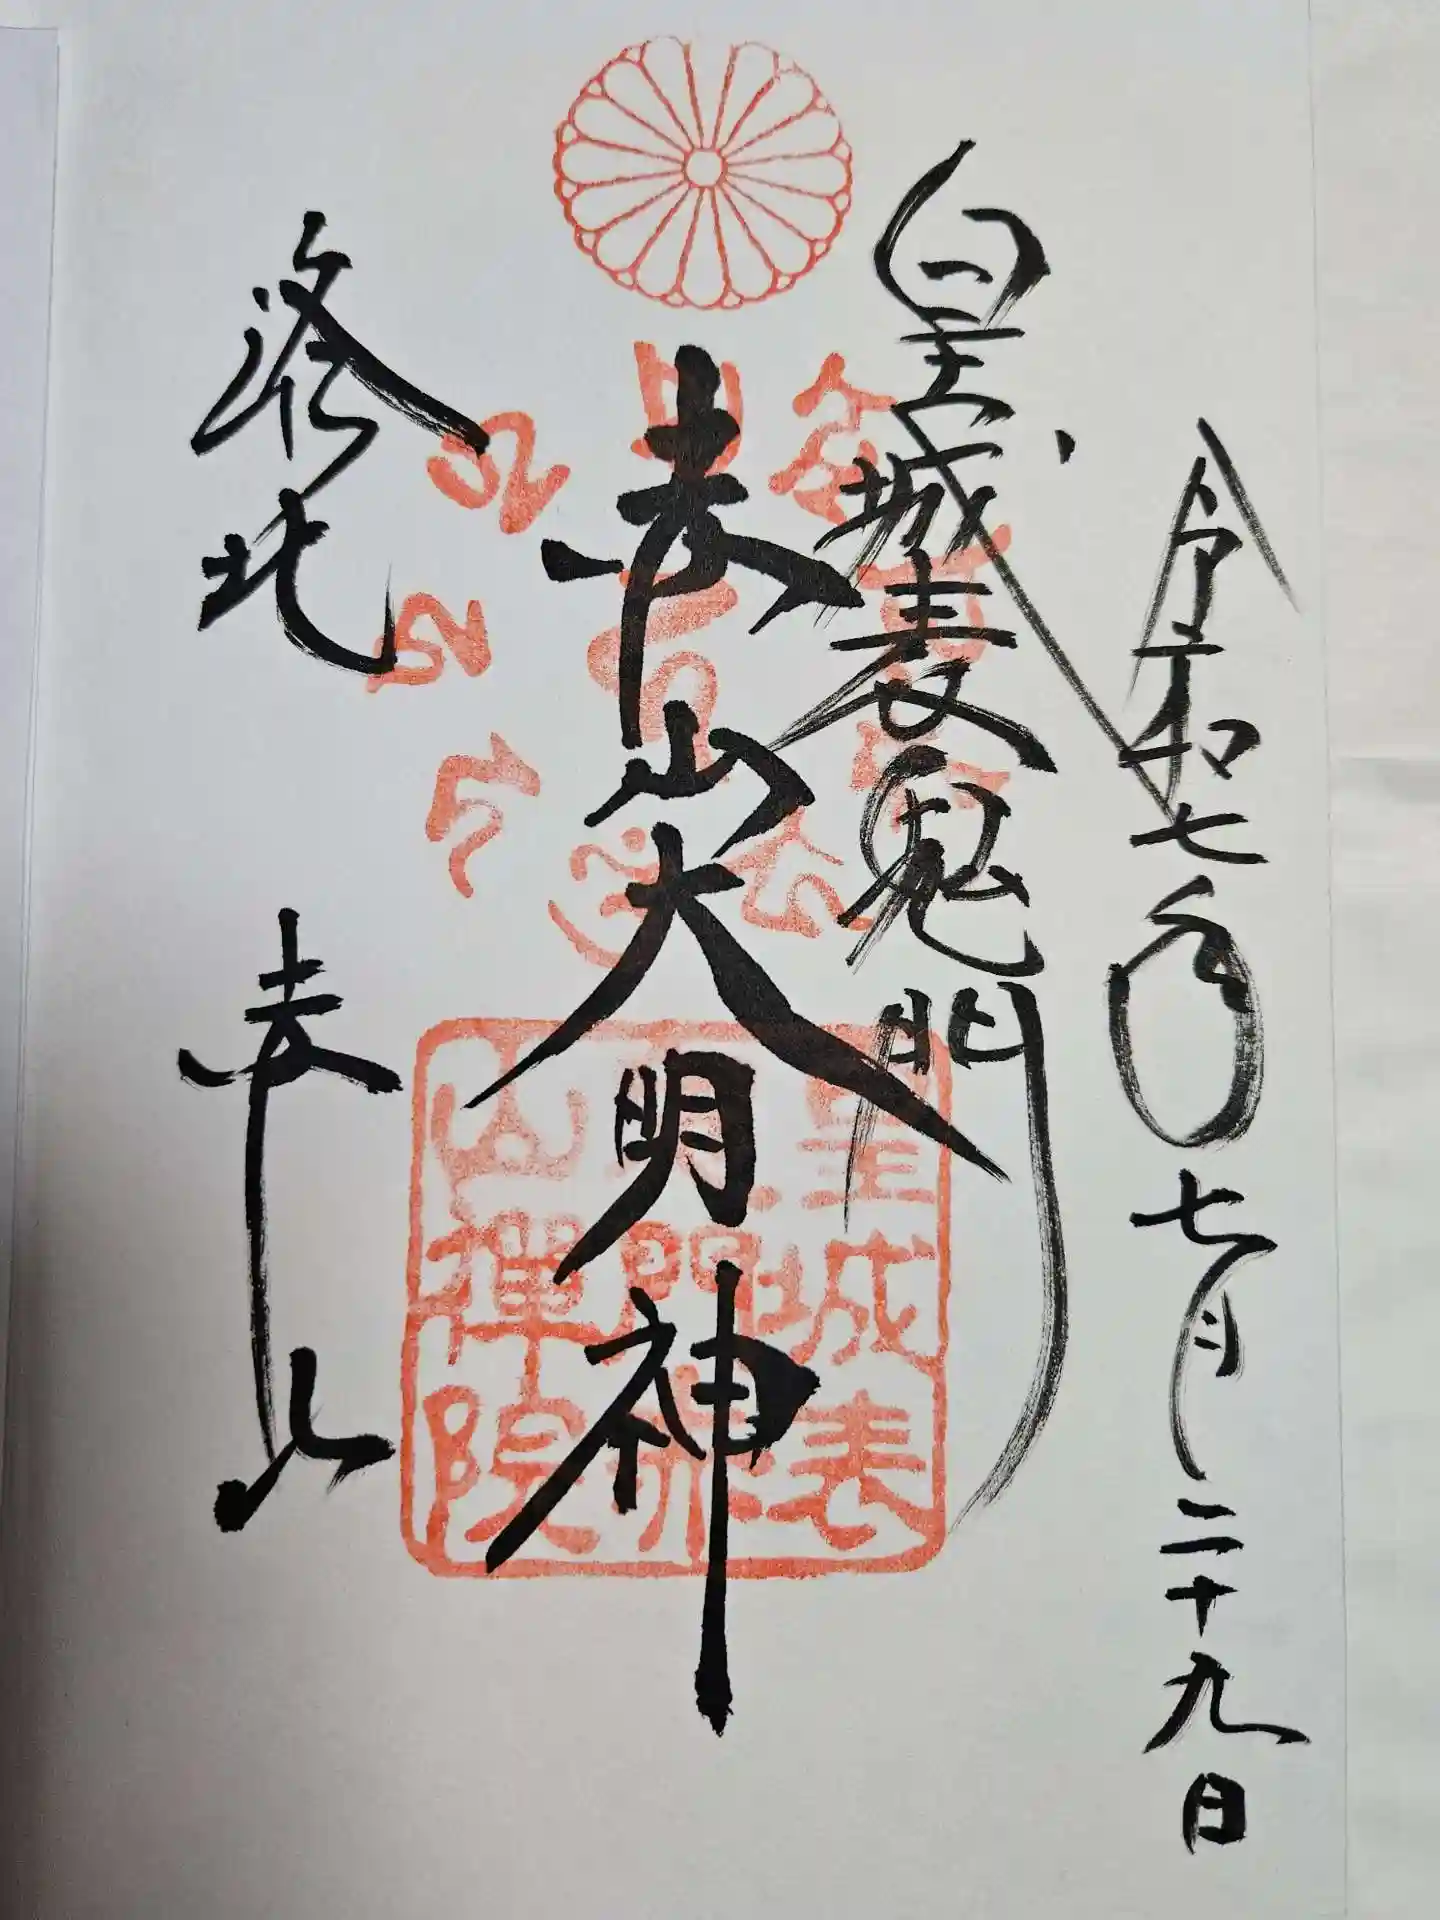 令和七年七月二十九日
皇城表鬼門
赤山大明神
洛北
赤山
皇城表
鬼門赤
山禅院